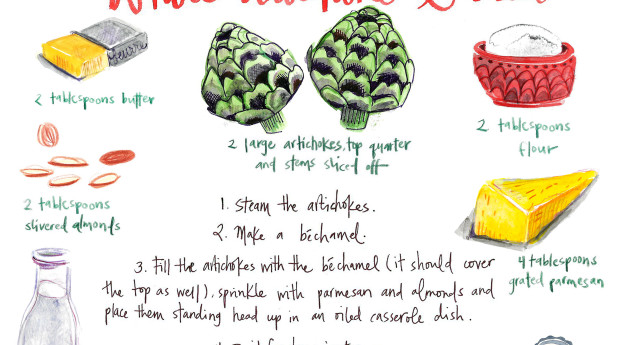 2 tablespoons butter
2 large artichokes, top quarter
and stems sliced off
2 tablespoons
flour
2 tablespoons
slivered almonds
4 tablespoons
grated parmesan
1. Steam the artichokes.
2. Make a béchamel.
3. Fill the artichokes with the béchamel (it should cover
the top as well), sprinkle with parmesan and almonds and
place them standing head up in an oiled casserole dish.